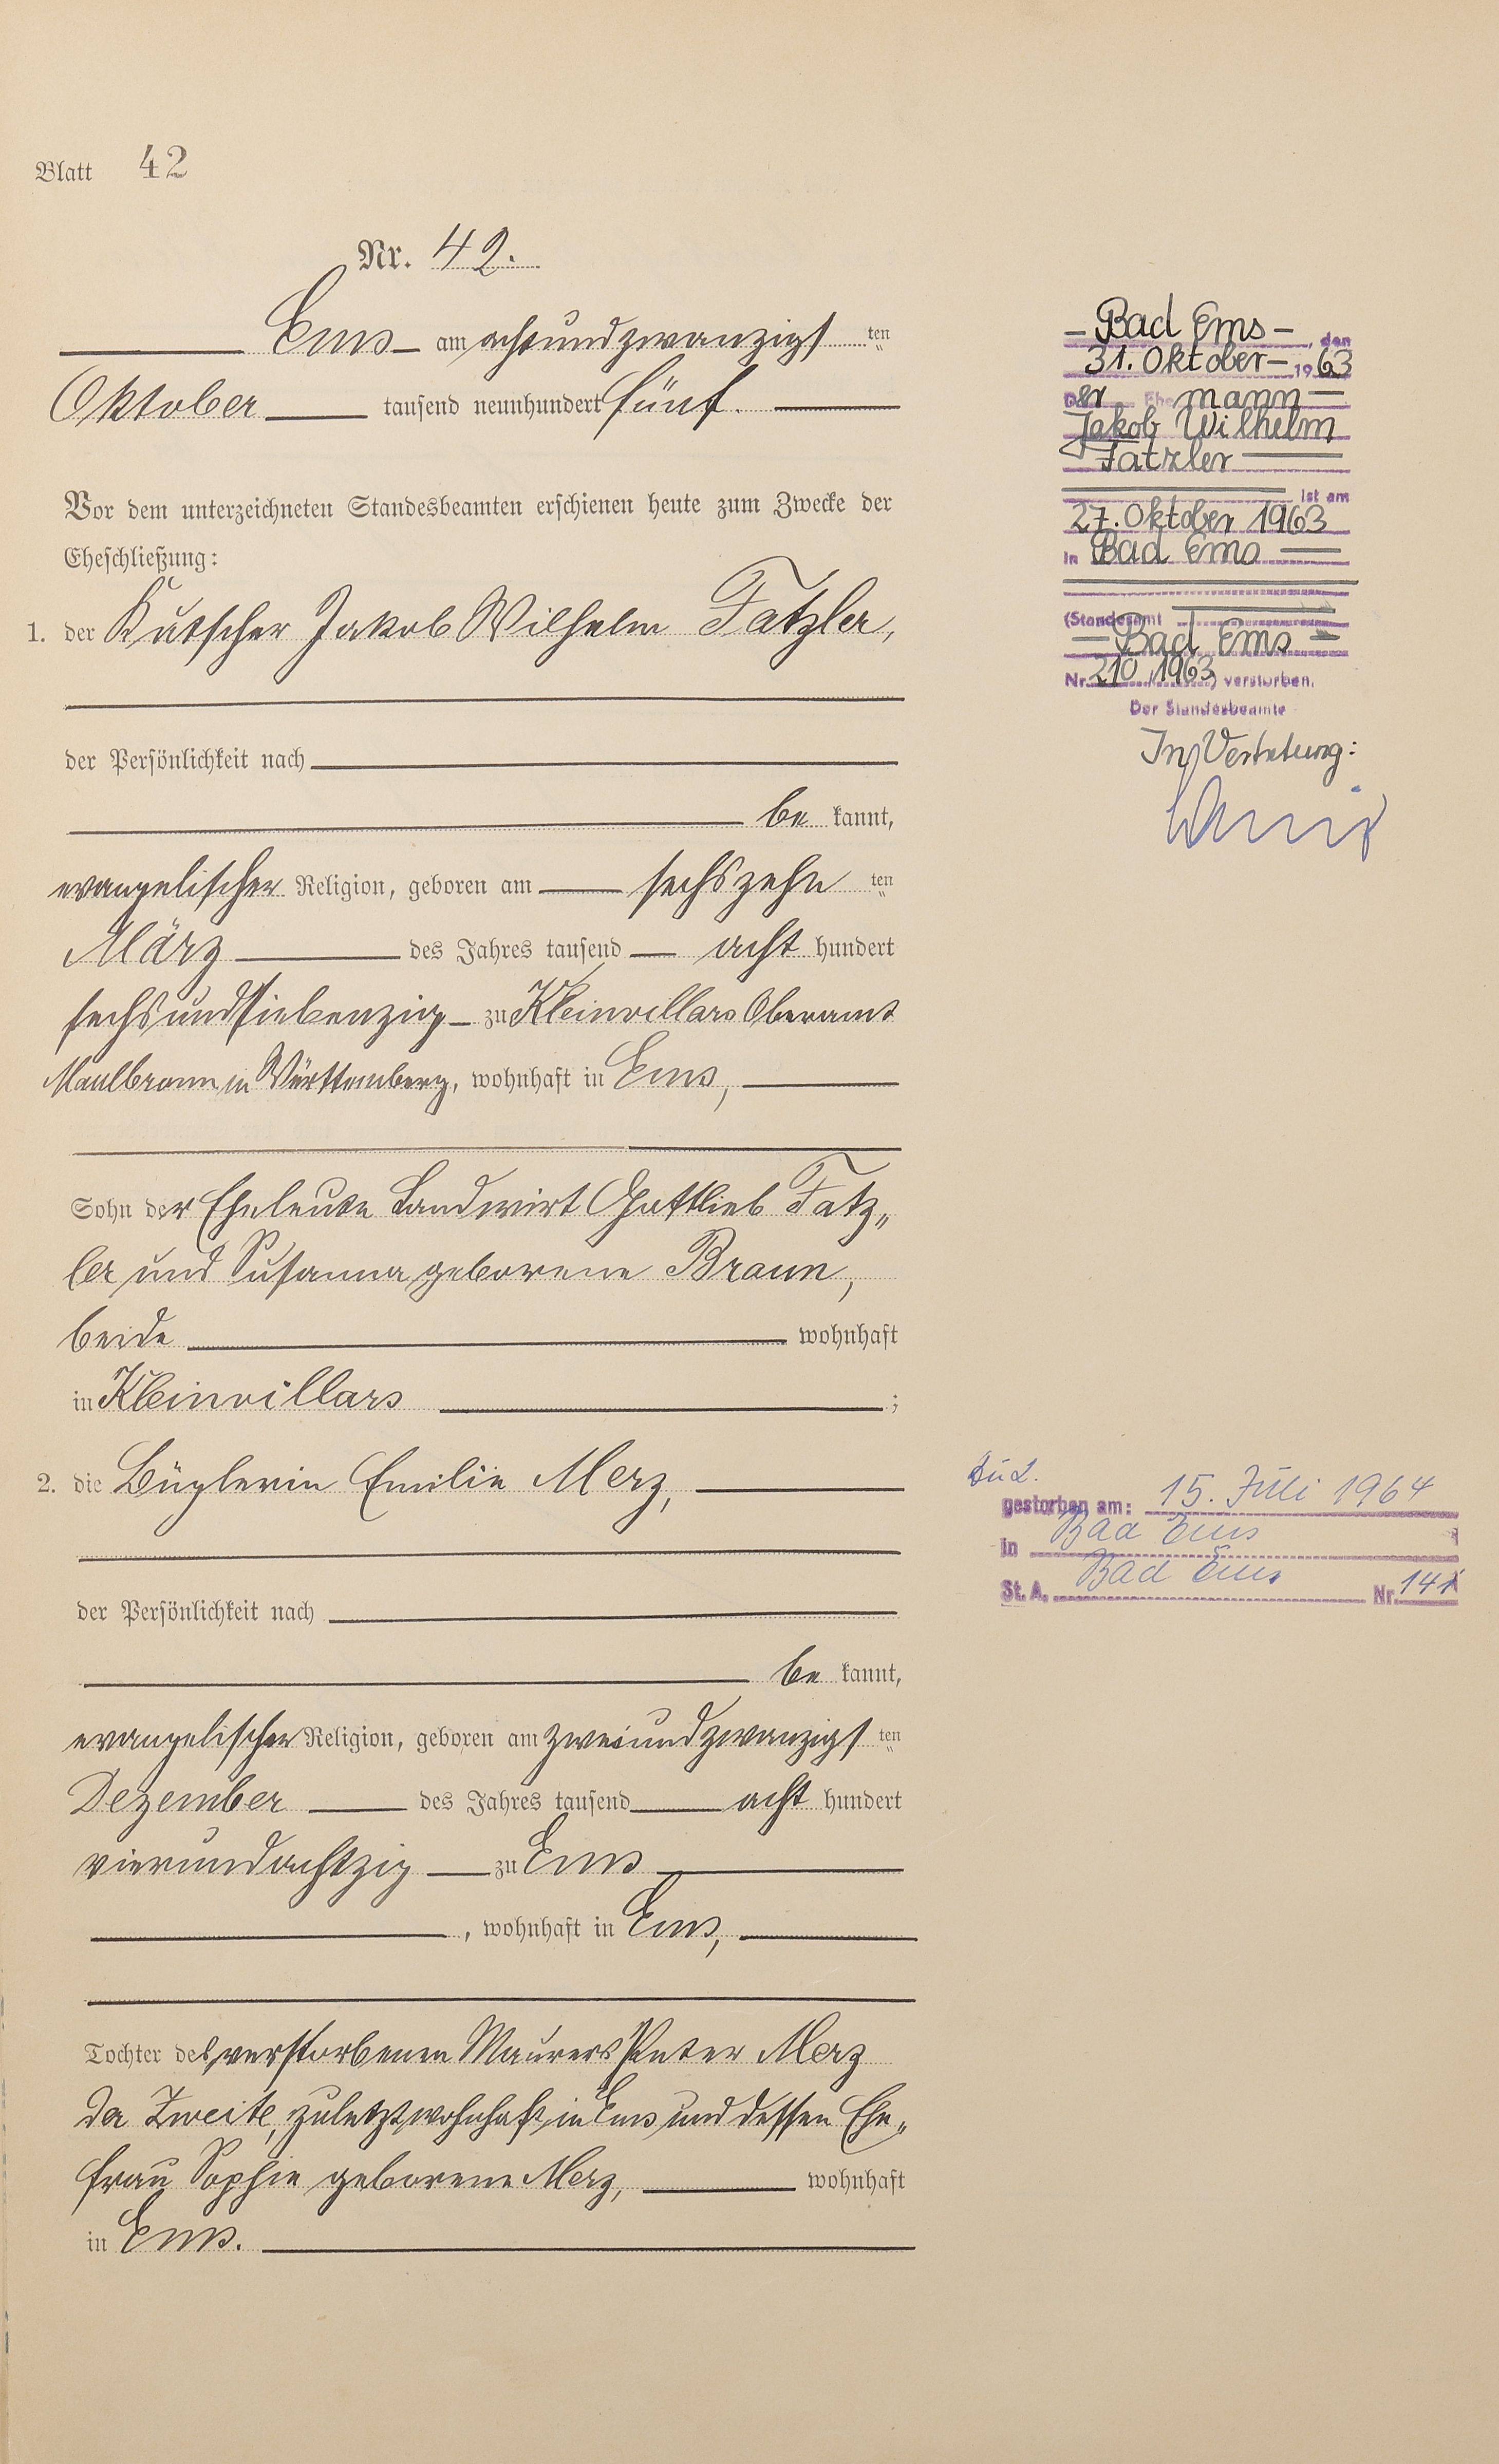 Blatt 42
Nr. 42.
Ems am achtundzwanzigsten
Oktober tausend neunhundert fünf.
Vor dem unterzeichneten Standesbeamten erschienen heute zum Zwecke der
Eheschließung:
1. der Kutscher Jakob Wilhelm Fatzler,
der Persönlichkeit nach
be kannt,
evangelischer Religion, geboren am sechszehn ten
März des Jahres tausend acht hundert
sechsundsiebenzig zu Kleinvillars Oberamt
Maulbronn in Württemberg, wohnhaft in Ems,
Sohn der Eheleute Landwirt Gottlieb Fatz„
ler und Susanna geborene Braun,
beide wohnhaft
in Kleinvillars ;
2. die Büglerin Emilie Merz,
der Persönlichkeit nach
be kannt,
evangelischer Religion, geboren am zweiundzwanzigsten
Dezember des Jahres tausend acht hundert
vierundachtzig zu Ems
, wohnhaft in Ems,
Tochter des verstorbenen Maurers Peter Merz
der Zweite, zuletzt wohnhaft in Ems und dessen Ehe„
frau Sophie geborene Merz, wohnhaft
in Ems.
Bad Ems, den
31. Oktober 1963
Der Ehemann
Jakob Wilhelm
Fatzler
ist am
27. Oktober 1963
in Bad Ems
(Standesamt
Bad Ems
Nr. 210/1963) verstorben.
Der Standesbeamte
In Vertretung:
gestorben am: 15. Juli 1964
in Bad Ems
St. A. Bad Ems Nr. 141